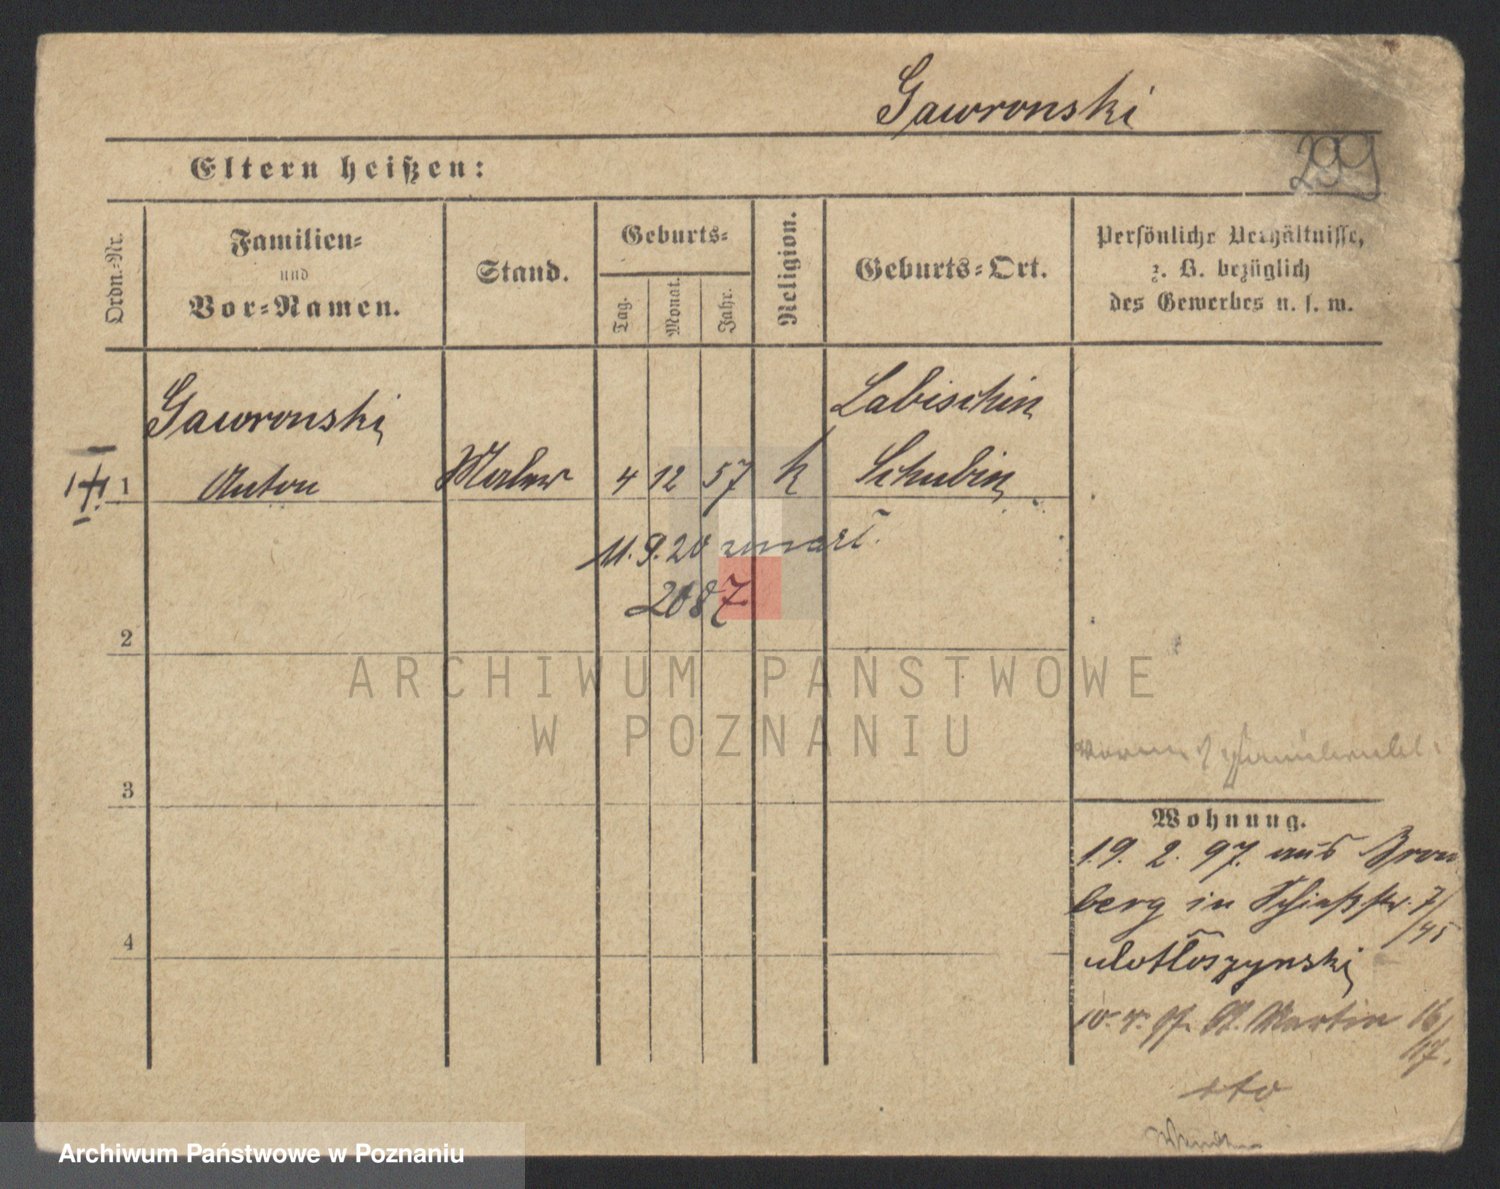 Gawronski
299
Eltern heißen:
Ordn.-Nr.
Familien-
und
Vor-Namen.
Stand.
Geburts-
Tag.
Monat.
Jahr.
Religion.
Geburts-Ort.
Persönliche Verhältnisse,
z. B. bezüglich
des Gewerbes u. s. w.
1
Gawronski
Anton
Maler
4 12 57
k
Labischin
Schubin
11.9.20
2087
2
3
4
Wohnung.
19. 2. 97. aus Brom
berg in Schießstr. 7/
/45
10. 4. 97. St. Martin 16/
/17.
ARCHIWUM PAŃSTWOWE
W POZNANIU
Archiwum Państwowe w Poznaniu